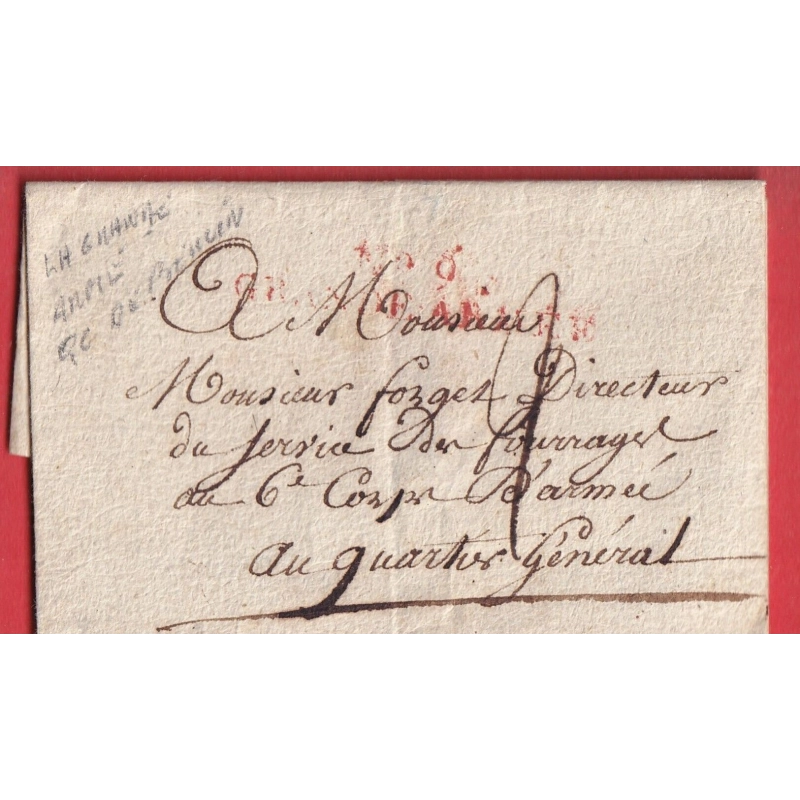 LA GRANDE
ARMÉE
QG DE BERLIN
No 6
GRANDE ARMÉE
A Monsieur
Monsieur forget Directeur
du Service des fourrages
au 6e Corps D'armeé
au quartier Général